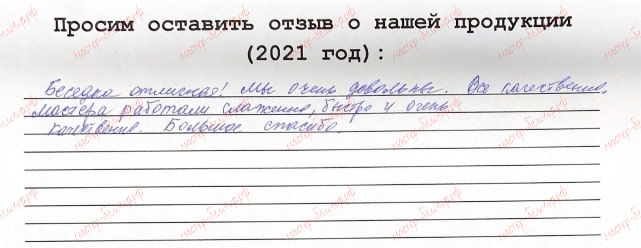 Просим оставить отзыв о нашей продукции
(2021 год):
Беседка отличная! Мы очень довольны. Все качественно,
мастера работали слаженно, быстро и очень
качественно. Большое спасибо